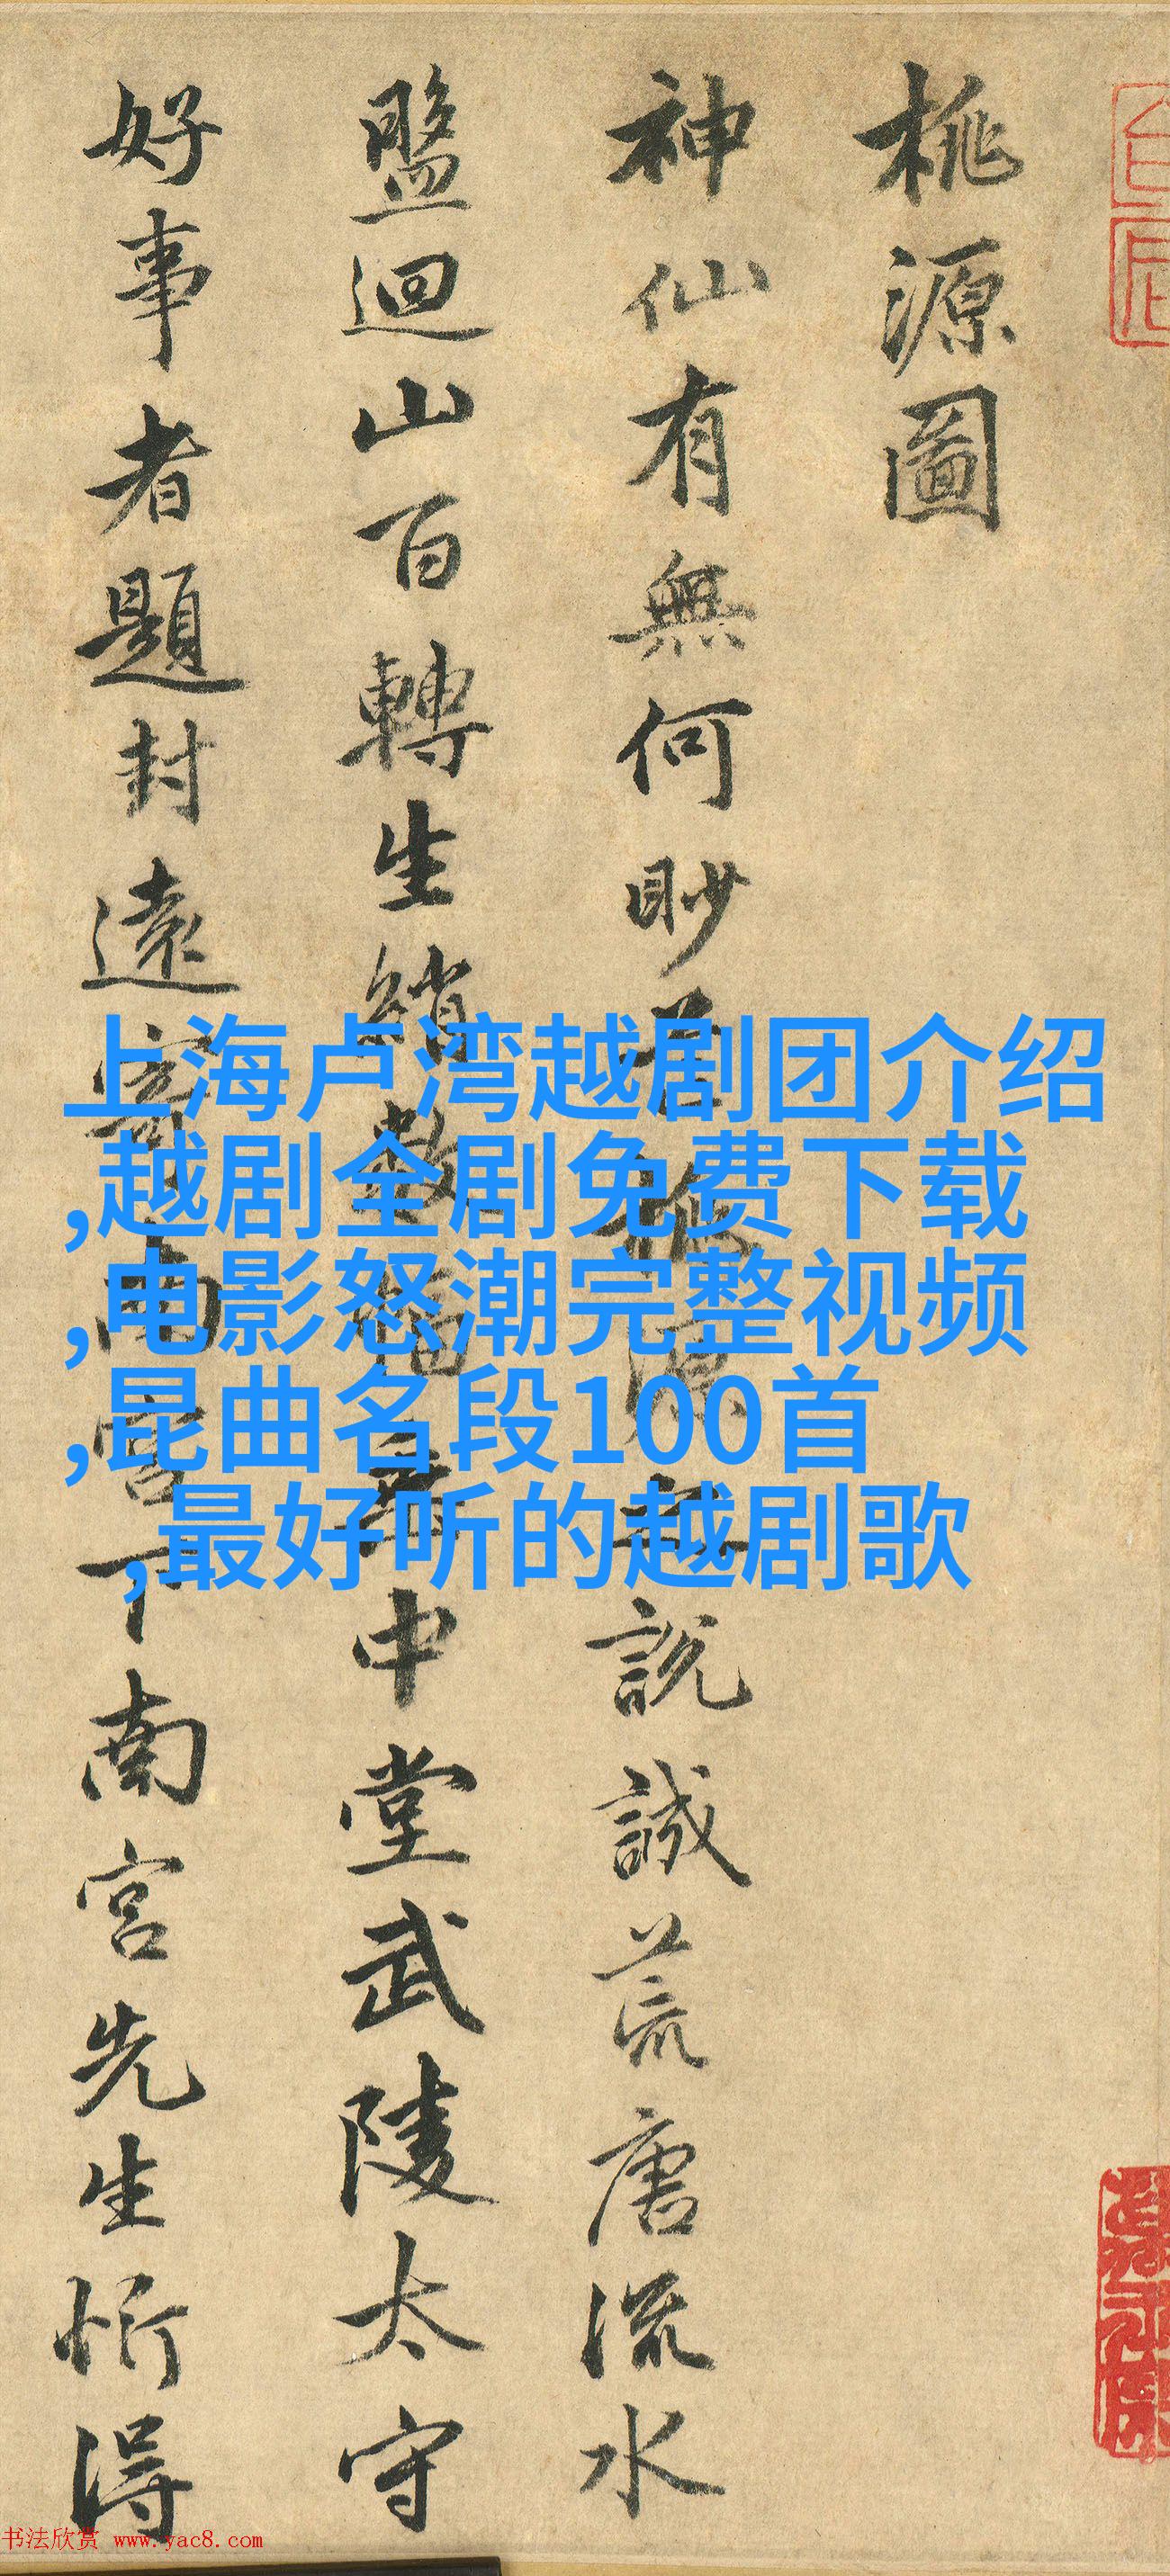 桃源圖
神仙有無何眇芒桃源之說誠荒唐流水
盤迴山百轉生綃數幅垂中堂武陵太守
好事者題封遠寄南宮下南宮先生忻得
上海卢湾越剧团介绍
,越剧全剧免费下载
,电影怒潮完整视频
,昆曲名段100首
,最好听的越剧歌
书法欣赏 www.yac8.com